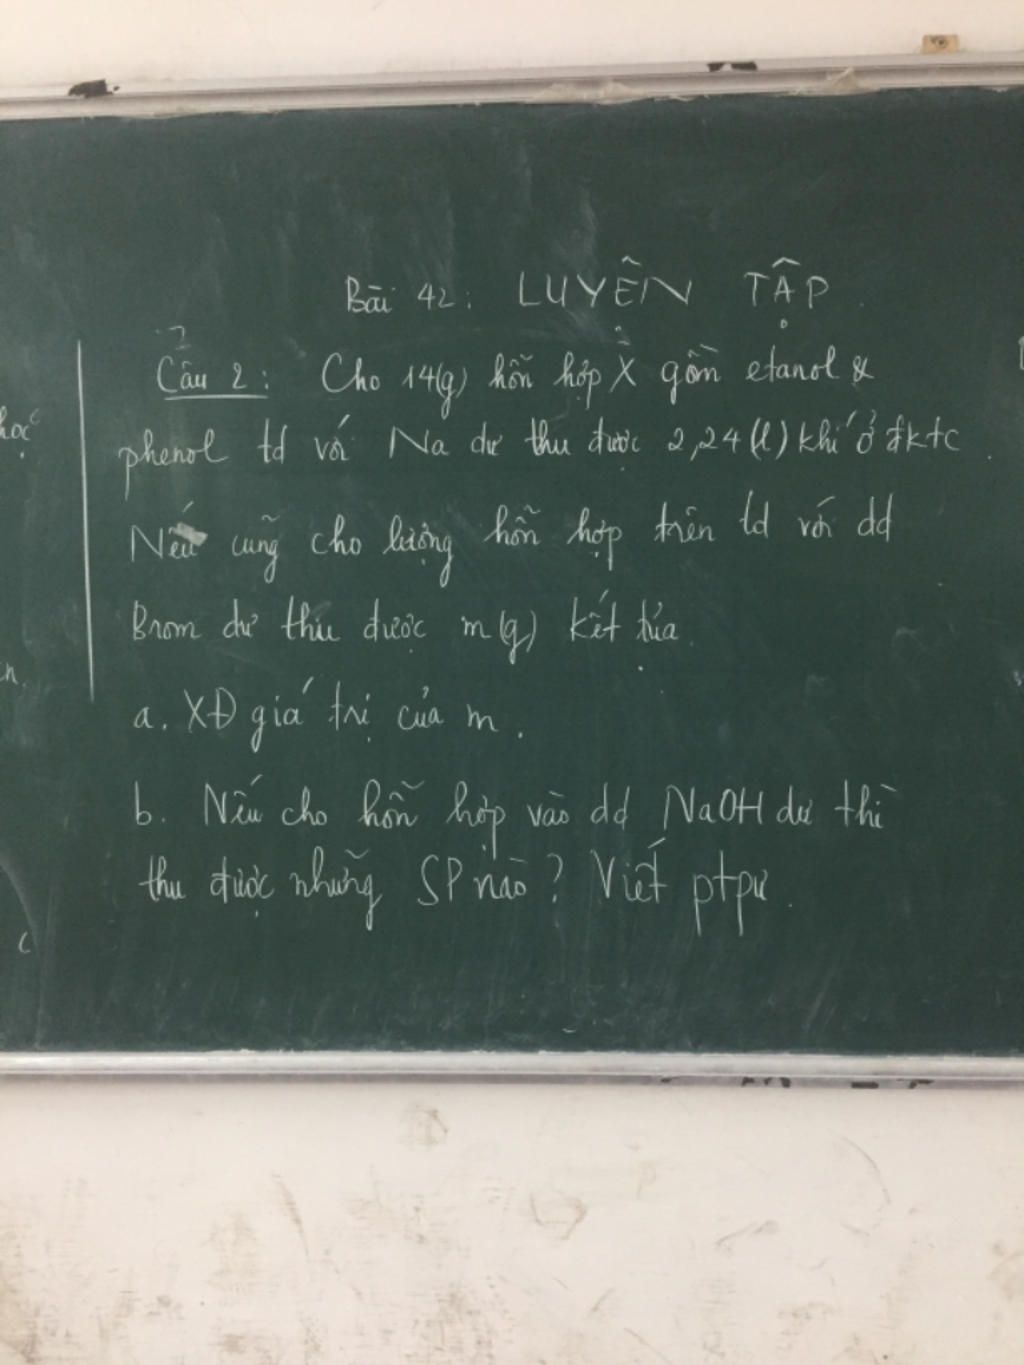 Bài 42: LUYỆN TẬP
Câu 2: Cho 14(g) hỗn hợp X gồm etanol &
phenol td với Na dư thu được 2,24 (l) khí ở đktc.
Nếu cũng cho lượng hỗn hợp trên td với dd
Brom dư thu được m(g) kết tủa.
a. XĐ giá trị của m.
b. Nếu cho hỗn hợp vào dd NaOH dư thì
thu được những SP nào? Viết ptpư.